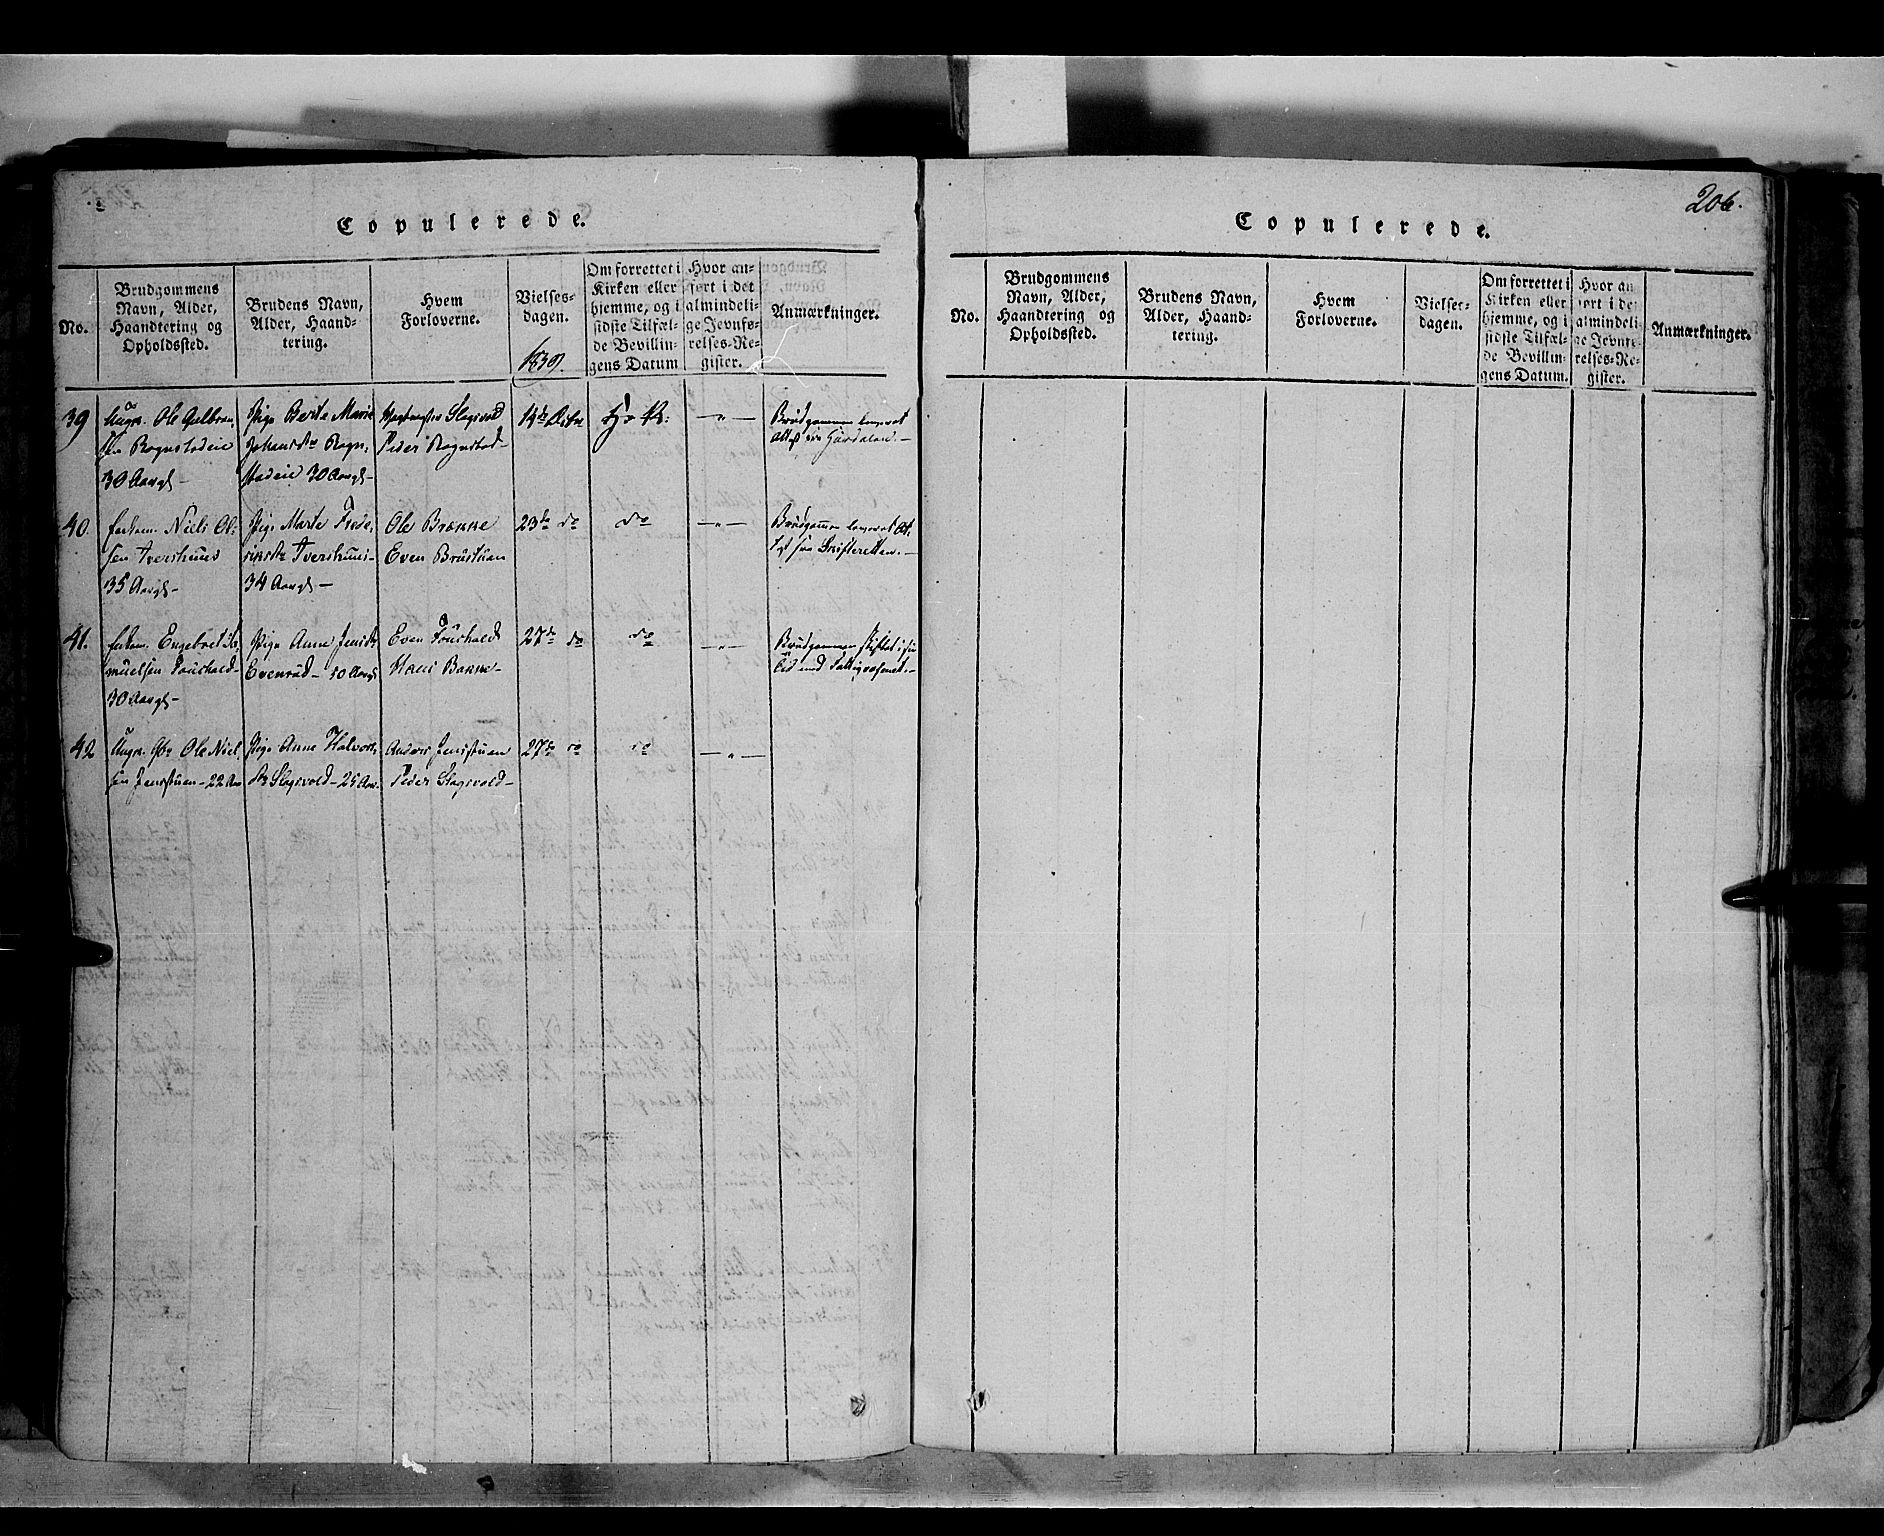 206.
Copulerede.
No.
Brudgommens
Navn, Alder,
Haandtering og
Opholdssted.
Brudens Navn,
Alder, Haand-
tering.
Hvem
Forloverne.
Vielses-
dagen.
1839.
Om forrettet i
Kirken eller
hjemme, og i
sidste Tilfæl-
de Bevillin-
gens Datum
Hvor an-
ført i det
almindeli-
ge Jevnfø-
relses-Re-
gister.
Anmærkninger.
39
Ungk. Ole Gulbran-
sen Rognstadeie
30 Aargl -
Pige Berte Marie
Johansdtr Rogn-
stadeie 30 Aargl -
Slagsvold
Peder Rognstad -
14de Debr
H. K.
- " -
Brudgommen leveret
Attest fra -
40.
Niels Ol-
sen Tvershuus
35 Aargl -
Pige Marte Frede-
riksdr Tvershuus -
34 Aargl -
Ole Brænne
Even Brustuen
23de do
do
- " -
Brudgommen leveret At-
test fra Skifteretten. -
41.
Engebret Sa-
muelsen
30 Aargl -
Pige Anne Jensdr
Evenrud - 30 Aargl
Even
Hans Bænne -
27de do
do
- " -
Brudgommen skiftet
med Fattigvæsenet. -
42
Ungk. Gbr Ole Niel-
sen Jensstuen - 22 Aar
Pige Anne Halvors-
dr Slagsvold - 25 Aar.
Anders Jensstuen
Peder Slagsvold -
27de do
do
- " -
Copulerede.
No.
Brudgommens
Navn, Alder,
Haandtering og
Opholdssted.
Brudens Navn,
Alder, Haand-
tering.
Hvem
Forloverne.
Vielser-
dagen.
Om forrettet i
Kirken eller
hjemme, og i
sidste Tilfæl-
de Bevillin-
gens Datum.
Hvor an
ført i de
almindeli-
ge Jevnfø-
relses-Re-
gister.
Anmærkninger.